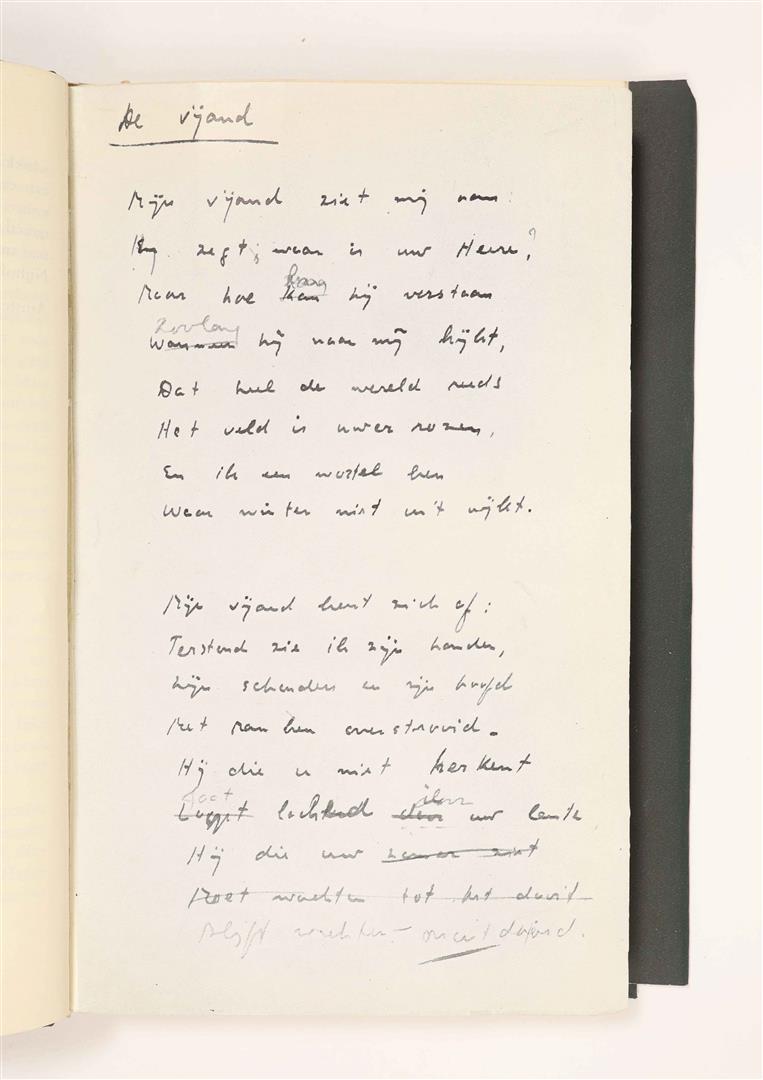 De vijand
Mijn vijand ziet mij aan:
Hij zegt; waar is uw Heere?
Maar hoe kan mag hij verstaan
zoolang
Wanneer hij naar mij kijkt,
Dat heel de wereld reeds
Het veld is uwer rozen,
En ik een wortel ben
Waar winter niet uit wijkt.
Mijn vijand kent zich af:
Terstond zie ik zijn handen,
Zijn schouders en zijn hoofd
Met ranken overstrooid.
Hij die u niet herkent
gaat door
Loopt lachend door uw lente
Hij die uw zomer ziet
Moet wachten tot het dooit
Blijft wachten